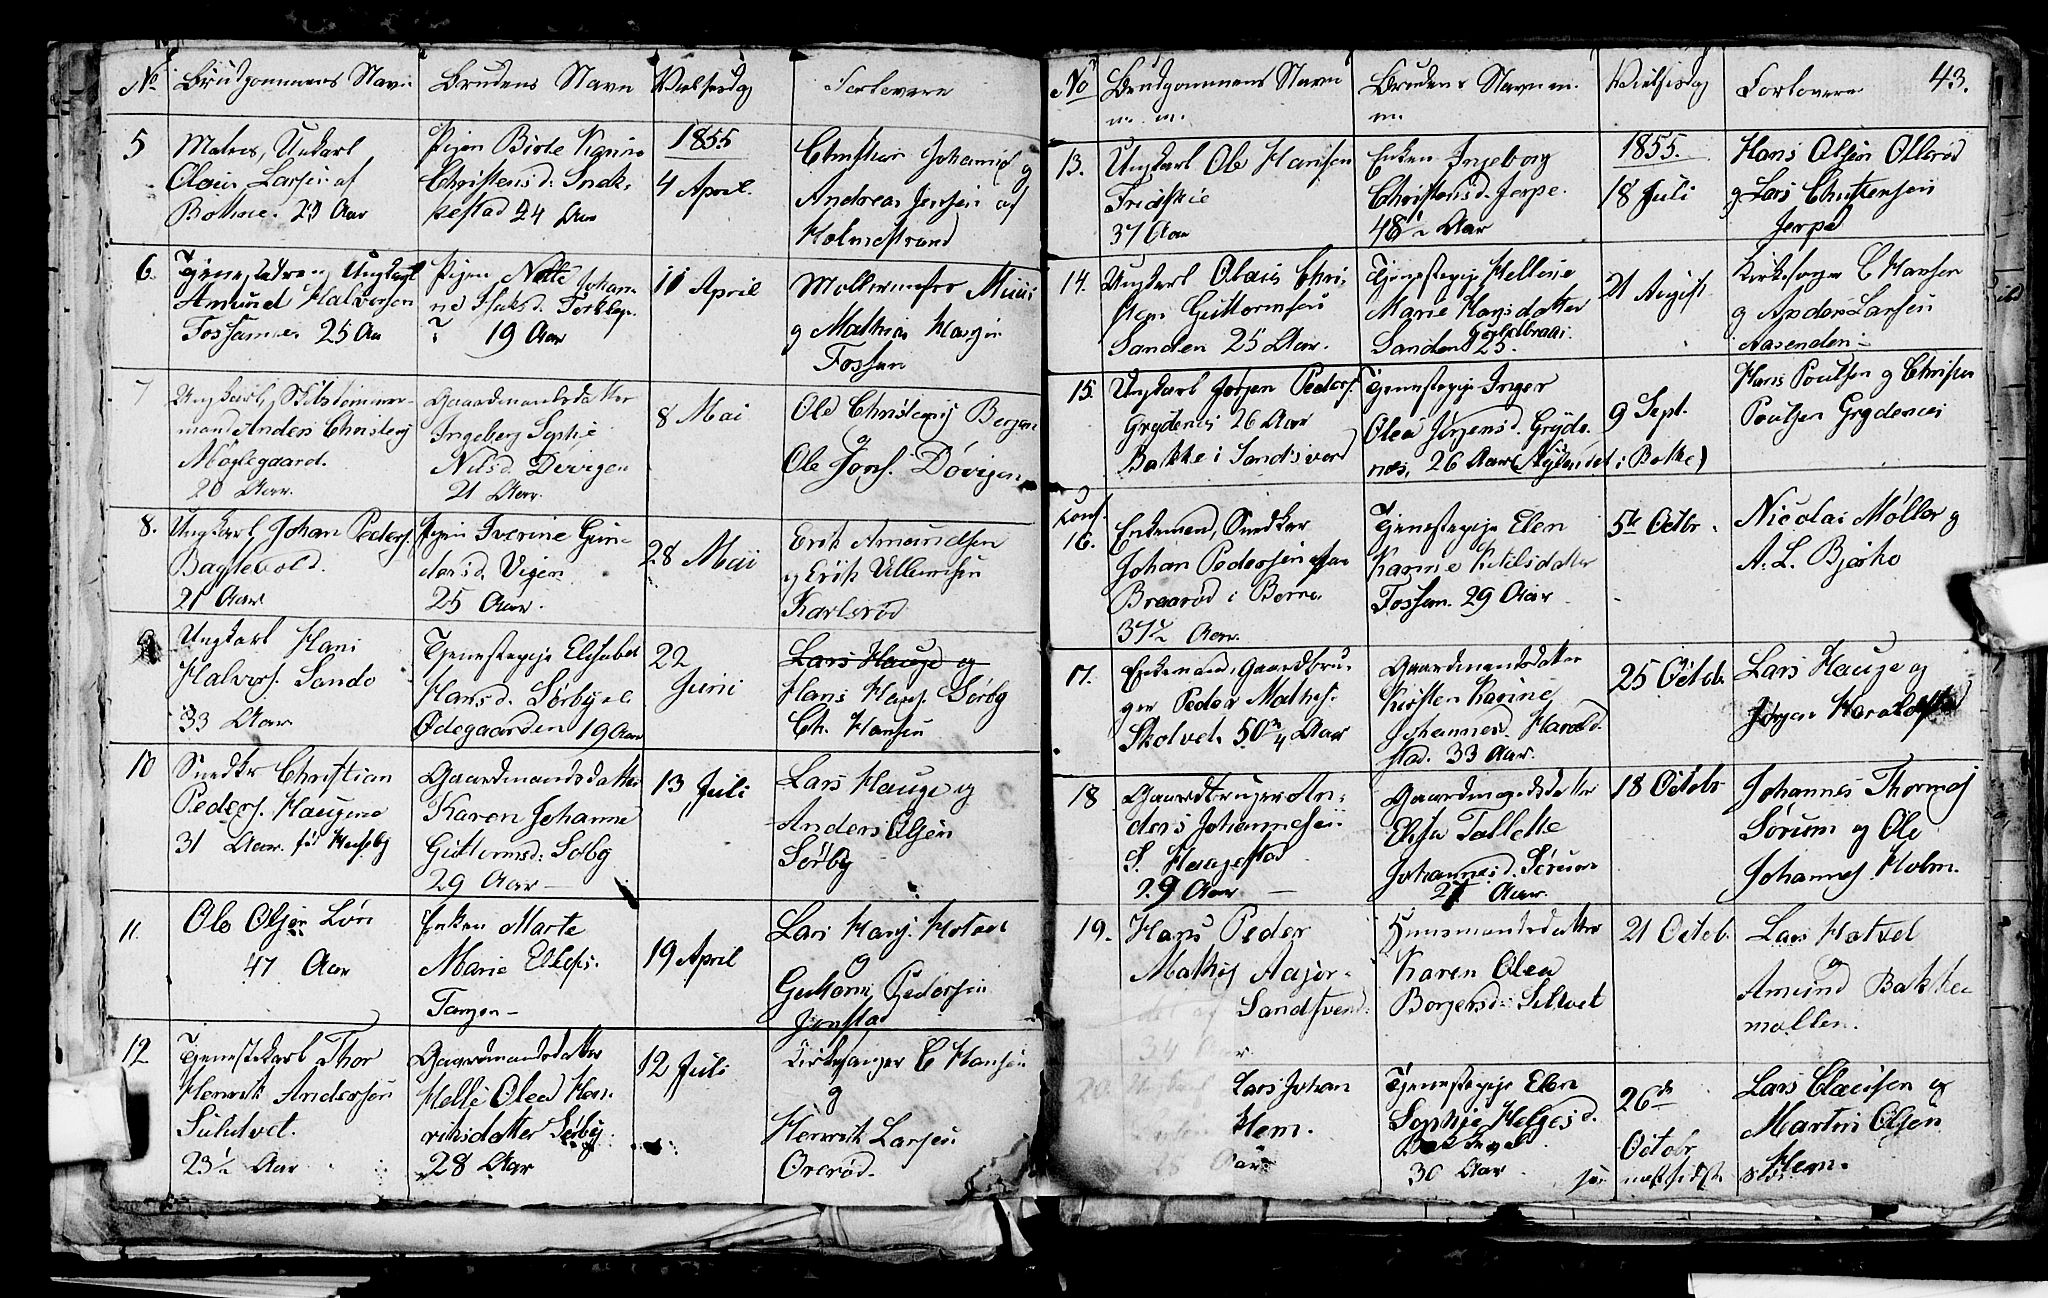 No Brudgommens Navn Brudens Navn Vielsesdag Forlovere
5 Matros, Unkarl
Olaus Larsen af
Bothne. 29 Aar
Pigen Birte Karine
Christensd: Snek-
kestad 24 Aar
1855
4 April.
Christian Johannes og
Andreas Jensen af
Holmestrand
6. Tjenestedreng Ungkarl
Amund Halvorsen
Fossane 25 Aar
Pigen Nelle Johan-
ne
19 Aar
11 April
Møllermester
og Mathias Hansen
Fossan
7 Ungkarl, Skibstømmer-
mand Anders Christens
Møglegaard.
20 Aar.
Gaardmandsdatter
Ingeborg Sophie
Nilsd. Døvigen
21 Aar.
8 Mai
Ole Christens Bergan
og
Ole Jons. Døvigen
8. Ungkarl, Johan Peders.
Baglevold.
21 Aar
Pigen Iverine Gun-
dersd. Vigen
25 Aar.
28 Mai
Erik Amundsen
og Erik Ellevsen
Karlsrød
9 Ungkarl Hans
Halvors. Sando
33 Aar
Tjenestepige Elisabet
Hansd. Sørbye
Ødegaarden 19 Aar
22
Juni
Hans Hans. Sørby
Ch. Hansen
10 Snedker Christian
Peders. Haugene
31 Aar.
Gaardmandsdatter
Karen Johanne
Guttormsd: Sørby
29 Aar —
13 Juli
Lars Hauge og
Anders Olsen
Sørby
11. Ole Olsen Løv
47 Aar
Enken Marte
Marie Ellefs.
Tangen —
19 April
Lars Hans. Hotvet
og
Guttorm Pedersen
Jonstad
12 Tjenestekarl Thor
Henrik Andersen
Sulutvet.
23½ Aar
Gaardmandsdatter
Helle Olea Hen-
riksdatter Sørby
28 Aar
12 Juli
Kirkesanger C Hansen
og
Henrik Larsen
Orerød.
43.
No Brudgommens Navn
m. m.
Brudens Navn m.
m.
Vielsesdag Forlovere
13. Ungkarl Ole Hansen
37 Aar
Enken Ingeborg
Christensd. Jerpe.
48½ Aar
1855.
18 Juli
Hans Olsen Ollerød
og Lars Christensen
Jerpe
14. Ungkarl Olaus Chri-
sten Guttormsen
Sanden 25 Aar.
Tjenestepige Helline
Marie Hansdatter
Sanden
25.
21 August
Kirkesanger C Hansen
og Anders Larsen
Aasenden —
15. Ungkarl Jørgen Peders.
Grydenes 26 Aar
Bakke i Sandsverd
Tjenestepige Inger
Olea Jørgensd. Gryde-
nes. 26 Aar (Nylendet i Bothe)
9 Sept.
Hans Poulsen og Christen
Poulsen Grydenes
Conf.
16. Enkemand, Snedker
Johan Pedersen
Braarød i Borre
37½ Aar.
Tjenestepige Elen
Karine Nilsdatter
Fossan. 29 Aar
5te Octbr.
Nicolai Møller og
A. L. Bjerke
17. Enkemand, Gaardbru-
ger Peder Mathis.
Skolvet 50¾ Aar
Gaardmandsdatter
Kirsten Karine
Johannesd. Harald-
stad. 33 Aar.
25 Octob.
Lars Hauge og
Jørgen Haraldstad
18 Gaardbruger An-
ders Johannesen
S. Haugestad
29 Aar —
Gaardmandsdatter
Elise Tallette
Johannesd. Sørum
27 Aar.
18 Octobr
Johannes Thormes
Sørum og Ole
Johannes. Holm.
19. Hans Peder
Mathis Aager-
Sandsverd.
34 Aar
Husmandsdatter
Karen Olea
Borgersd: Sulvet
21 Octob.
Lars Hotvet
og
Amund Bakke
møllen.
20. Ungkarl Lars Johan
Hem.
28 Aar
Tjenestepige Elen
Sophie Helgesd.
30 Aar.
26de
Octobr
Lars Clausen og
Martin Olsen
Hem.